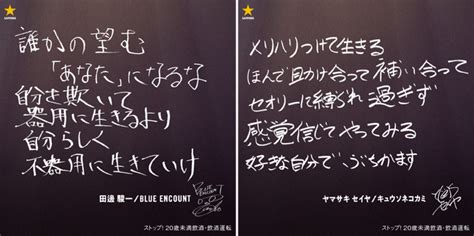 SAPPORO
誰かの望む
「あなた」になるな
自分を欺いて
器用に生きるより
自分らしく
不器用に生きていけ
田邊 駿一/BLUE ENCOUNT
ストップ!20歳未満飲酒・飲酒運転
SAPPORO
メリハリつけて生きる
ほんで助け合って補い合って
セオリーに縛られ過ぎず
感覚信じてやってみる
好きな自分で、ぶちかます
ヤマサキ セイヤ/キュウソネコカミ
ストップ!20歳未満飲酒・飲酒運転